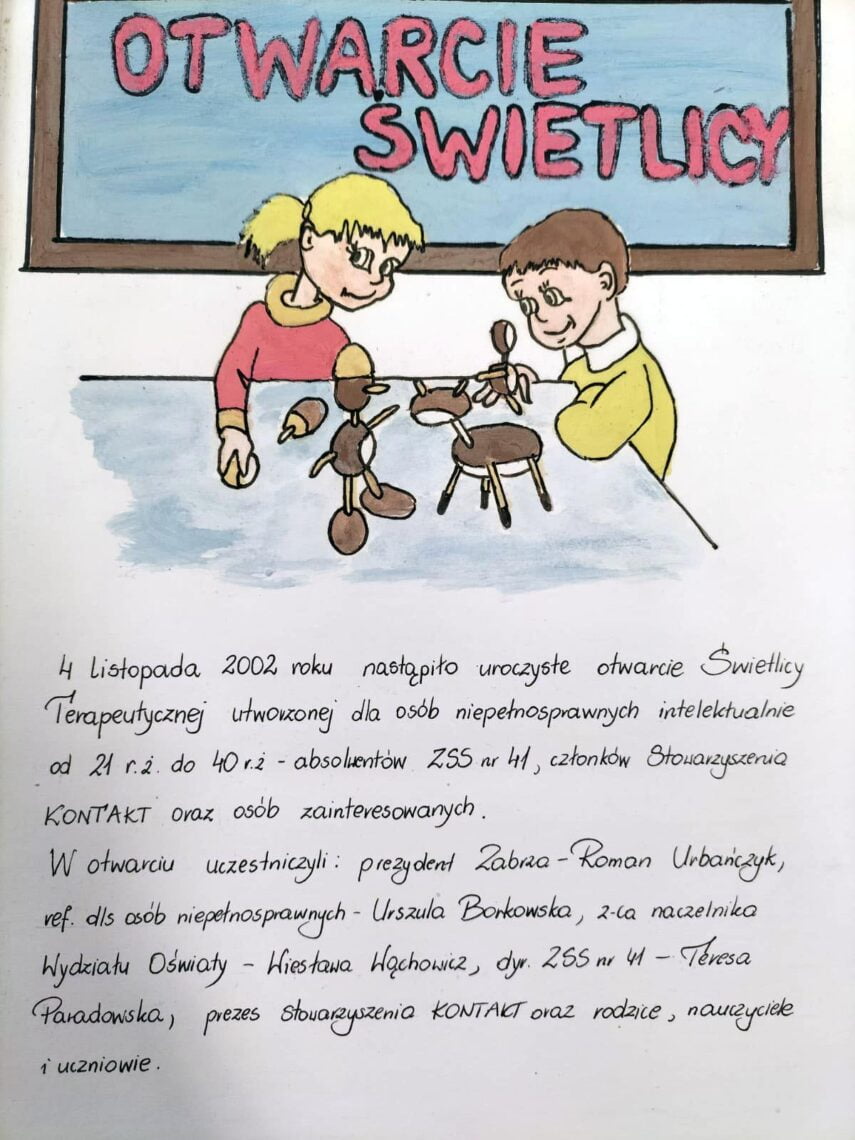 OTWARCIE
ŚWIETLICY
4 Listopada 2002 roku nastąpiło uroczyste otwarcie Świetlicy
Terapeutycznej utworzonej dla osób niepełnosprawnych intelektualnie
od 21 r.ż. do 40 r.ż - absolwentów ZSS nr 41, członków Stowarzyszenia
KONTAKT oraz osób zainteresowanych.
W otwarciu uczestniczyli: prezydent Zabrza - Roman Urbańczyk,
ref. dls osób niepełnosprawnych - Urszula Borkowska, z-ca naczelnika
Wydziału Oświaty - Wiesława Wąchowicz, dyr. ZSS nr 41 - Teresa
Paradowska, prezes Stowarzyszenia KONTAKT oraz rodzice, nauczyciele
i uczniowie.